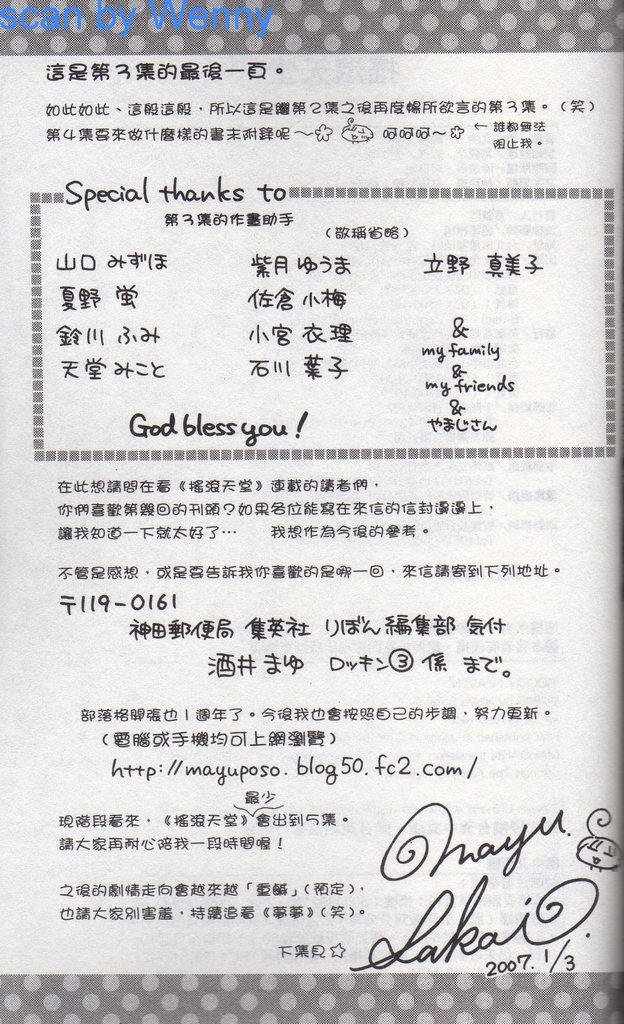 scan by Wenny
這是第3集的最後一頁。
如此如此、這般這般，所以這是繼第2集之後再度暢所欲言的第3集。（笑）
第4集要來做什麼樣的書末附錄呢～ 呵呵呵～ ← 誰都無法
阻止我。
Special thanks to
第3集的作畫助手
（敬稱省略）
山口 みずほ 紫月 ゆうま 立野 真美子
夏野 蛍 佐倉 小梅
鈴川 ふみ 小宮 衣理
天堂 みこと 石川 葉子
&
my family
&
my friends
&
やまじさん
God bless you!
在此想請問在看《搖滾天堂》連載的讀者們，
你們喜歡第幾回的刊頭？如果各位能寫在來信的信封邊邊上，
讓我知道一下就太好了… 我想作為今後的參考。
不管是感想，或是要告訴我你喜歡的是哪一回，來信請寄到下列地址。
〒119-0161
神田郵便局 集英社 りぼん編集部 気付
酒井 まゆ ロッキン③ 係 まで。
部落格開張也1週年了。今後我也會按照自己的步調，努力更新。
（電腦或手機均可上網瀏覽）
http://mayuposo.blog50.fc2.com/
最少
現階段看來，《搖滾天堂》會出到5集。
請大家再耐心陪我一段時間喔！
之後的劇情走向會越來越「重鹹」（預定），
也請大家別害羞，持續追看《夢夢》（笑）。
下集見☆
mayu.
Sakai.
2007. 1/3